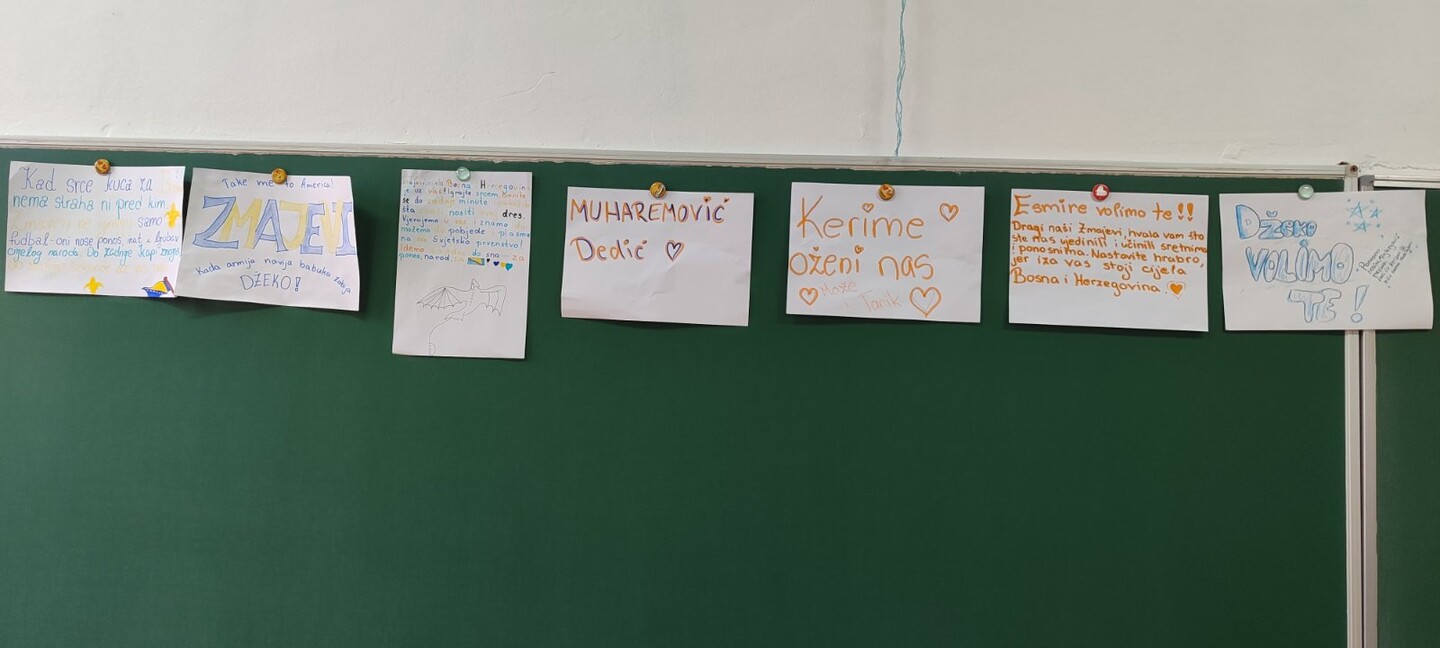 Kad srce kuca za
nema straha ni pred kim.
samo
fudbal-oni nose ponos, nat, i ljubav
cijelog naroda. Do zadnje kapi znoja
Take me to America!
ZMAJEVI
Kada armija navija babuka zabija
DŽEKO!
Bosna i Hercegovina
je uz vas! Igrajte srcem borite
se do zadnje minute
šta nositi dres.
Vjerujemo u vas i znamo da
možemo do pobjede i plasmana
na Svjetsko prvenstvo!
Idemo do sna - za
ponos, narod, za
MUHAREMOVIĆ
Dedić
Kerime
oženi nas
Može
i Tarik
Esmire volimo te!!
Dragi naši Zmajevi, hvala vam što
ste nas ujedinili i učinili sretnima
i ponosnima. Nastavite hrabro,
jer iza vas stoji cijela
Bosna i Herzegovina.
Džeko
VOLIMO
TE!